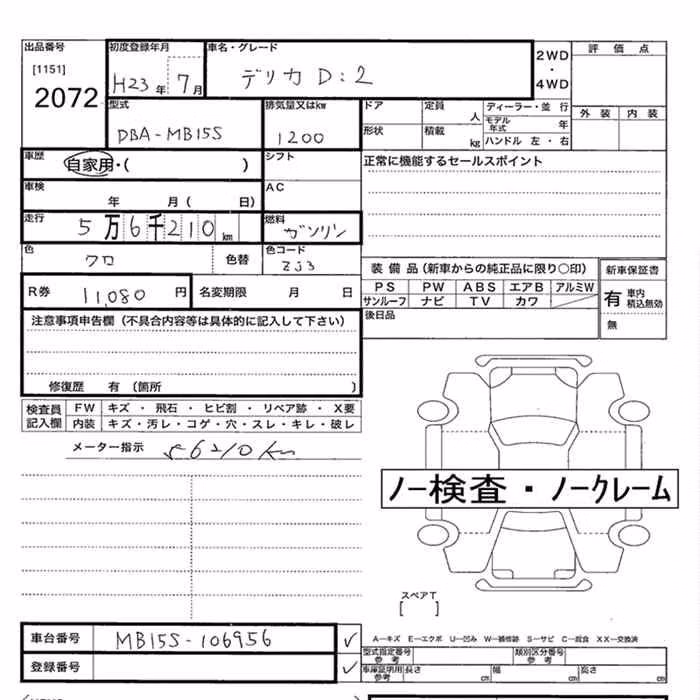 出品番号 初度登録年月 車名・グレード 2WD・4WD 評価点
[1151]
2072 H23年 7月 デリカ D:2
型式 排気量又はkw ドア 定員 人 ディーラー・並行 外装 内装
DBA-MB15S 1200 形状 積載 kg モデル年式 年
ハンドル 左・右
車歴 自家用・( ) シフト 正常に機能するセールスポイント
車検 年 月( 日) AC
走行 5万6千210km 燃料 ガソリン
色 クロ 色替 色コード ZJ3
装備品(新車からの純正品に限り○印) 新車保証書
R券 11,080円 名変期限 月 日 PS PW ABS エアB アルミW 有 車内積込無効
サンルーフ ナビ TV カワ
注意事項申告欄(不具合内容等は具体的に記入して下さい) 後日品 無
修復歴 有 (箇所 )
検査員記入欄 FW キズ・飛石・ヒビ割・リペア跡・X要
内装 キズ・汚レ・コゲ・穴・スレ・キレ・破レ
メーター指示 56210km
ノー検査・ノークレーム
スペアT
[ ]
車台番号 MB15S-106956 ✓
A―キズ E―エクボ U―凹み W―補修跡 S―サビ C―腐食 XX―交換済
登録番号 ✓ 型式指定番号 参考 類別区分番号 参考
車庫証明用 参考 長さ cm 幅 cm 高さ cm